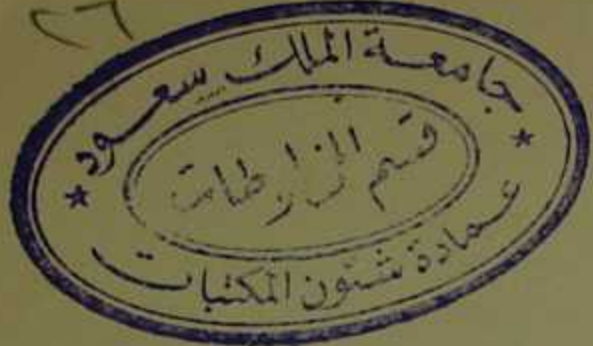 ٢٦
جامعة الملك سعود
قسم المخطوطات
عمادة شئون المكتبات